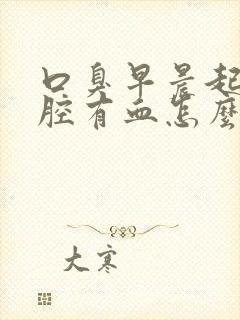 口臭早晨起
腔有血怎麼
大寒